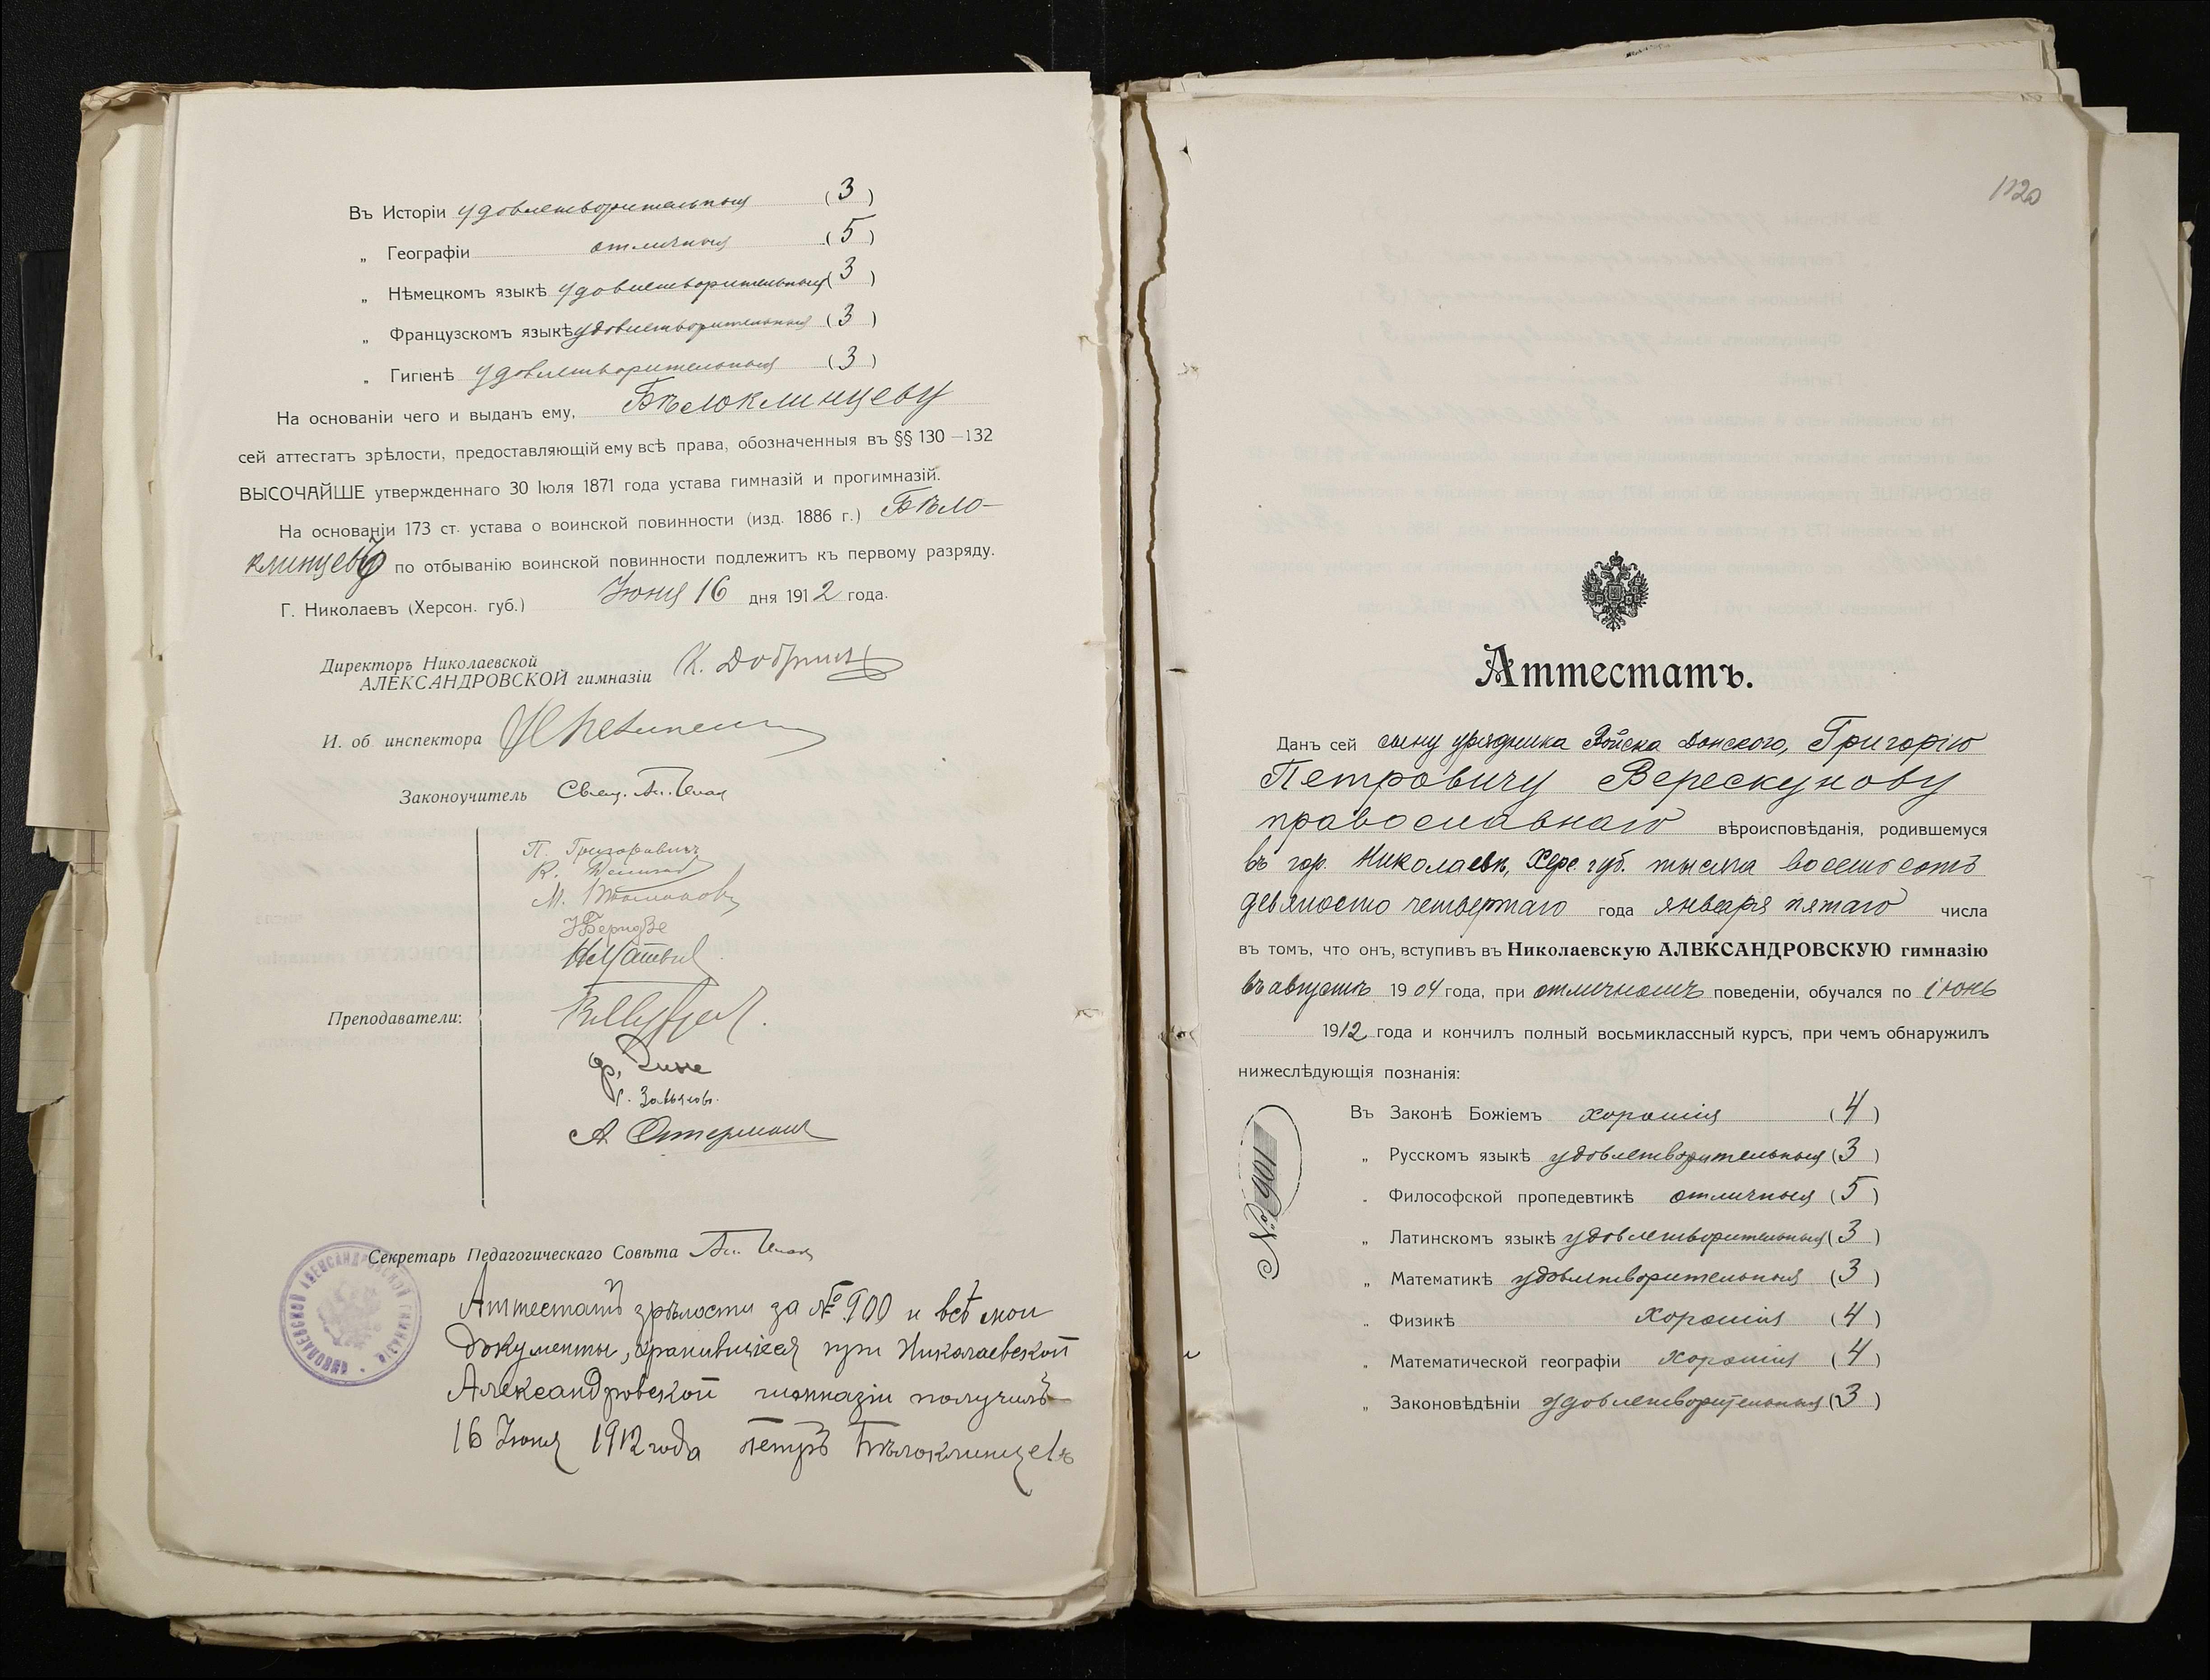 Въ Исторіи удовлетворительныя (3)
„ Географіи отличныя (5)
„ Нѣмецкомъ языкѣ удовлетворительныя (3)
„ Французскомъ языкѣ удовлетворительныя (3)
„ Гигіенѣ удовлетворительныя (3)
На основаніи чего и выданъ ему, Бѣлоклинцеву
сей аттестатъ зрѣлости, предоставляющій ему всѣ права, обозначенныя въ §§ 130—132
ВЫСОЧАЙШЕ утвержденнаго 30 Іюля 1871 года устава гимназій и прогимназій.
На основаніи 173 ст. устава о воинской повинности (изд. 1886 г.) Бѣло-
клинцевъ по отбыванію воинской повинности подлежитъ къ первому разряду.
Г. Николаевъ (Херсон. губ.) Іюня 16 дня 1912 года.
Директоръ Николаевской
АЛЕКСАНДРОВСКОЙ гимназіи К. Добрин
И. об. инспектора
Законоучитель Свящ. Ал.
П. Григоровичъ
К.
М.
Преподаватели:
А. Остерманъ
Секретарь Педагогическаго Совѣта Ал.
НИКОЛАЕВСКОЙ АЛЕКСАНДРОВСКОЙ ГИМНАЗІИ
Аттестатъ зрѣлости за № 900 и всѣ мои
документы, хранившіеся при Николаевской
Александровской гимназіи получилъ
16 Іюня 1912 года Петръ Бѣлоклинцевъ
1120
Аттестатъ.
Данъ сей сыну урядника Войска Донского, Григорію
Петровичу Верескунову
православнаго вѣроисповѣданія, родившемуся
въ гор. Николаевѣ, Херс. губ. тысяча восемьсотъ
девяносто четвертаго года января пятаго числа
въ томъ, что онъ, вступивъ въ Николаевскую АЛЕКСАНДРОВСКУЮ гимназію
въ августѣ 1904 года, при отличномъ поведеніи, обучался по іюнь
1912 года и кончилъ полный восьмиклассный курсъ, при чемъ обнаружилъ
нижеслѣдующія познанія:
Въ Законѣ Божіемъ хорошія (4)
„ Русскомъ языкѣ удовлетворительныя (3)
„ Философской пропедевтикѣ отличныя (5)
„ Латинскомъ языкѣ удовлетворительныя (3)
„ Математикѣ удовлетворительныя (3)
„ Физикѣ хорошія (4)
„ Математической географіи хорошія (4)
„ Законовѣдѣніи удовлетворительныя (3)
№ 901